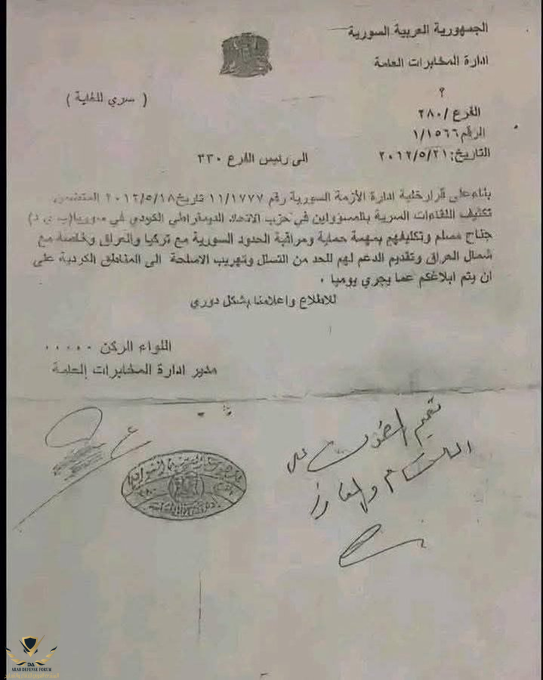 الجمهورية العربية السورية
ادارة المخابرات العامة
؟
( سري للغاية )
الفرع /٢٨٠
الرقم ١/١٥٦٦
التاريخ: ٢٠١٢/٥/٢١
الى رئيس الفرع ٣٣٠
بناء على قرار خلية ادارة الأزمة السورية رقم ١١/١٧٧٧ تاريخ ٢٠١٢/٥/١٨ المتضمن
تكثيف اللقاءات السرية بالمسؤولين في حزب الاتحاد الديمقراطي الكودي في سوريا(ب ي د)
جناح مسلم وتكليفهم بمهمة حماية ومراقبة الحدود السورية مع تركيا والعراق وخاصة مع
شمال العراق وتقديم الدعم لهم للحد من التسلل وتهريب الاسلحة الى المناطق الكردية على
ان يتم ابلاغكم عما يجري يوميا .
للاطلاع واعلامنا بشكل دوري
اللواء الركن ٠٠٠٠٠
مدير ادارة المخابرات العامة
تعميم على
الاقسام والمفارز
٢٨٠
ARAB DEFENSE FORUM